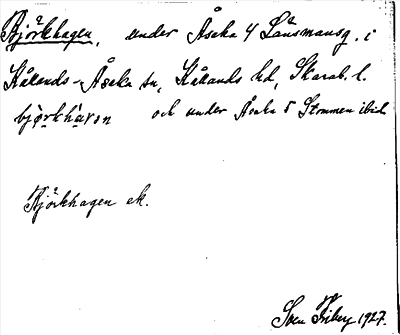 Björkhagen, under Åsaka 4 Länsmansg. i
Kållands-Åsaka sn, Kållands hd, Skarab. l.
bjǫrkhàvan och under Åsaka 5 Stommen ibid.
Björkhagen ek.
Sven Friberg 1927.